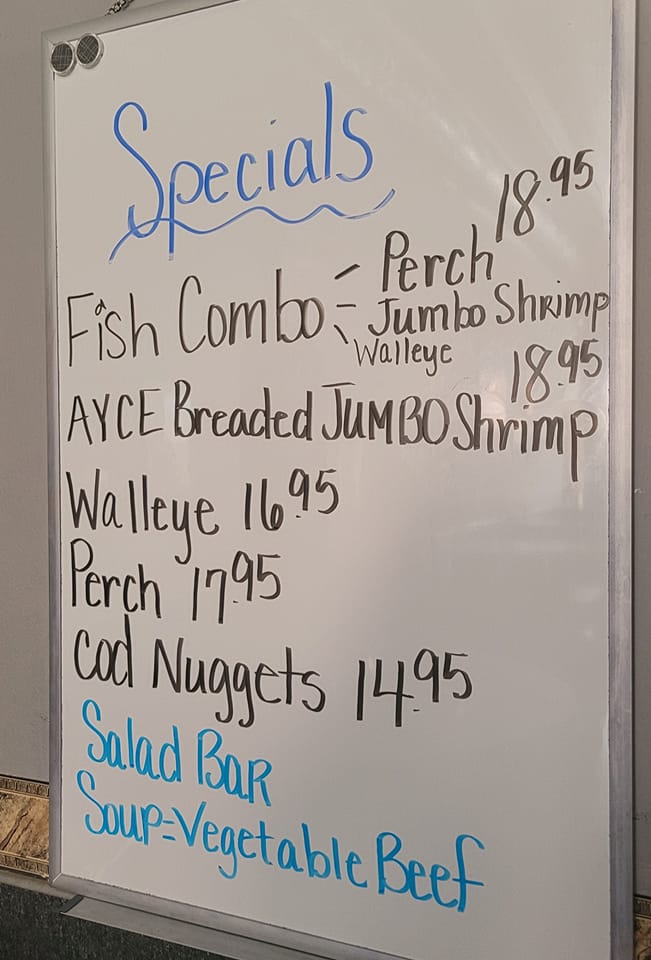 Specials
Fish Combo - Perch 18.95
- Jumbo Shrimp
\ Walleye
AYCE Breaded JUMBO Shrimp 18.95
Walleye 16.95
Perch 17.95
Cod Nuggets 14.95
Salad BaR
Soup=Vegetable Beef